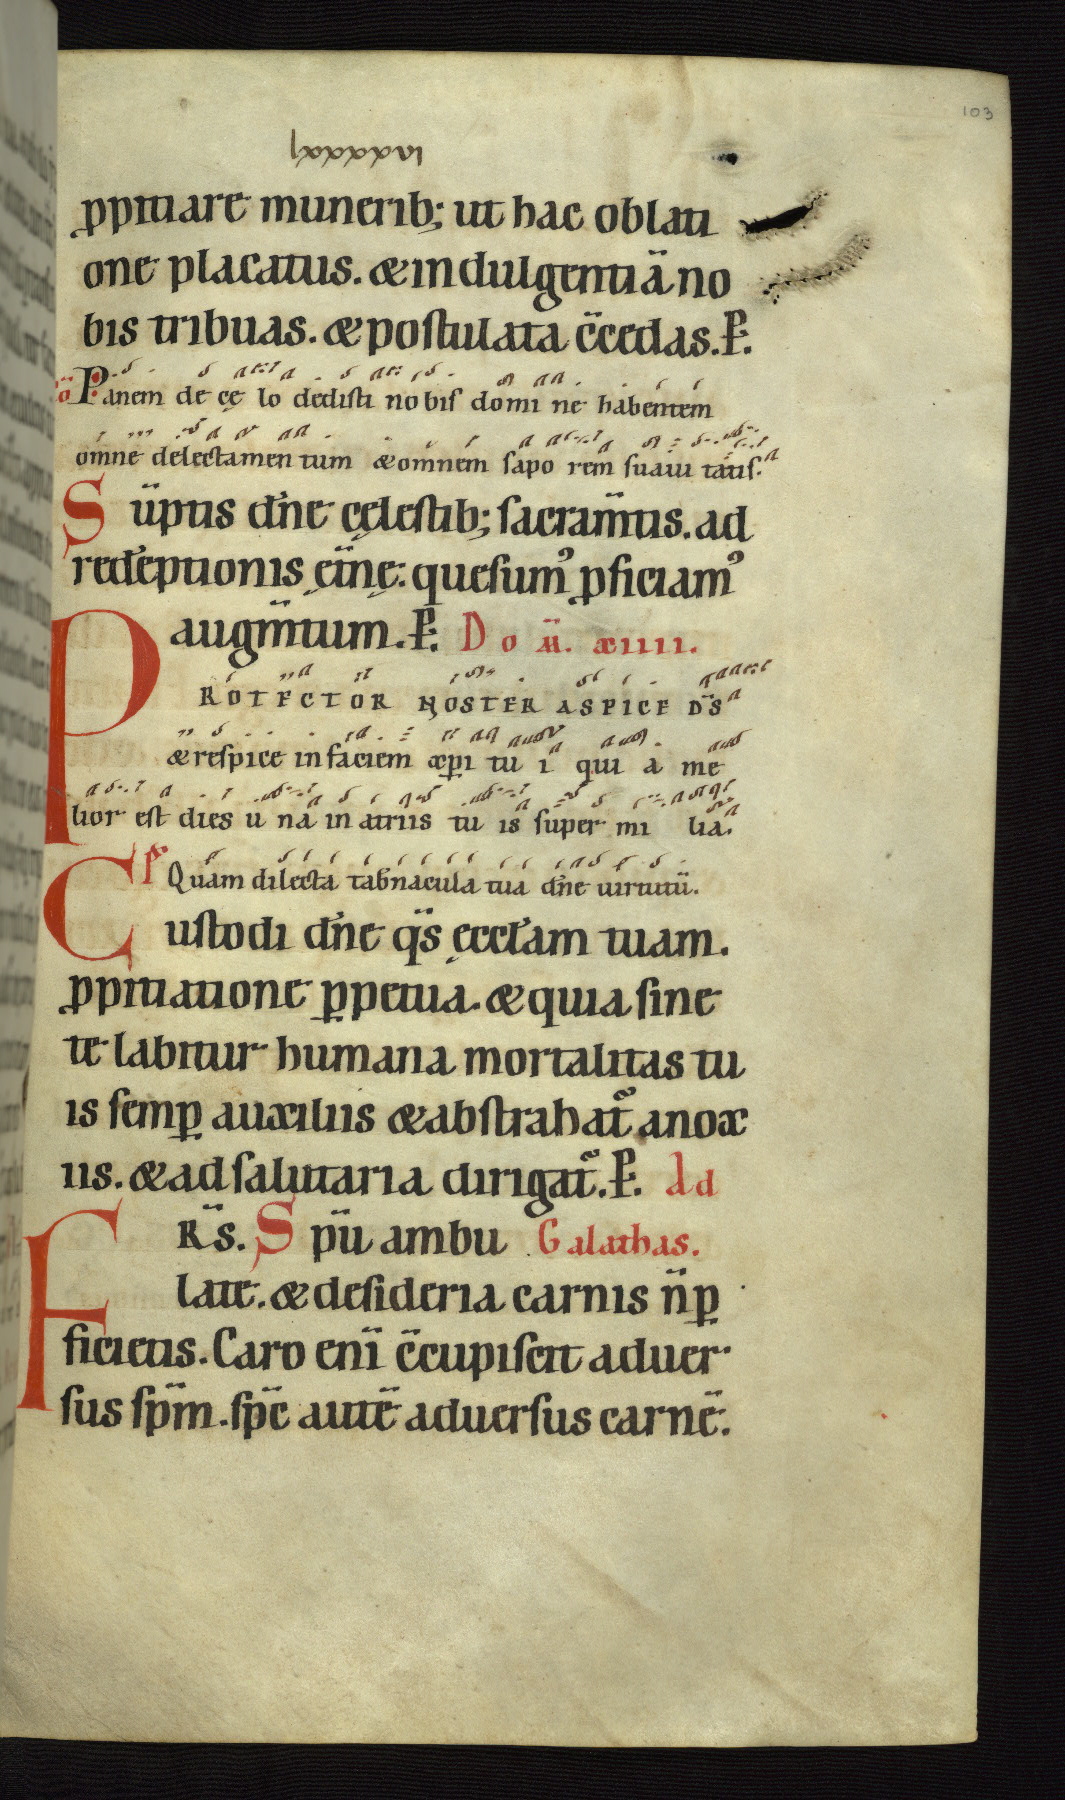 103
lxxxxxvı
ppitiare munerib; ut hac oblati
one placatus. & indulgentiā no
bis tribuas. & postulata c̄cedas. P̄.
cō Panem de cęlo dedisti nobis domine habentem
omne delectamentum & omnem saporem suauitatis.
Sūptis dn̄e cęlestib; sacram̄tis. ad
redēptionis ęt̄nę: quesum᾿ pficiam᾿
augm̄tum. P̄. Dom̄. xiiii.
PROTECTOR NOSTER ASPICE DS̄
& respice in faciem xp̄i tui quia me
lior est dies una in atriis tuis super milia.
Ps Quam dilecta tab̄nacula tua dn̄e uirtutū.
Custodi dn̄e qs̄ ęccl̄am tuam.
ppitiatione ppetua. & quia sine
te labitur humana mortalitas tu
is semp auxiliis & abstrahat̄ anox
iis. & ad salutaria dirigat̄. P̄. Ad
FRS̄. Spū ambu Galathas.
late. & desideria carnis n̄ p
ficietis. Caro enī c̄cupiscit aduer
sus sp̄m. sp̄c autē aduersus carnē.